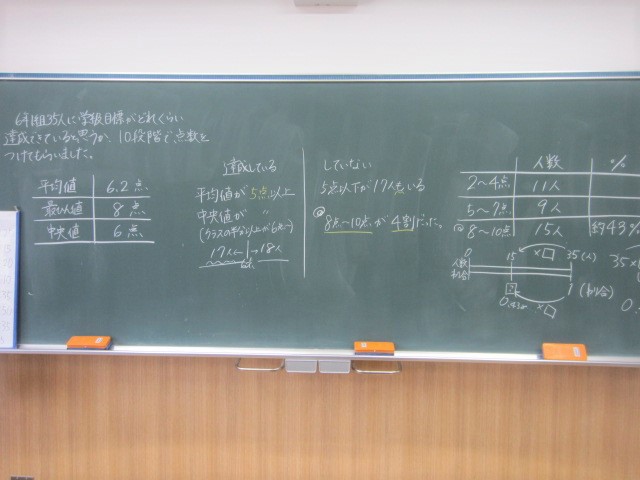 6年1組35人に学級目標がどれくらい
達成できていると思うか、10段階で点数を
つけてもらいました。
平均値 6.2点
最ひん値 8点
中央値 6点
達成している
平均値が5点以上
中央値が 〃
(クラスの半分以上が6点〜)
17人← →18人
していない
5点以下が17人もいる
8点〜10点が4割だった。
人数 %
2〜4点 11人
5〜7点 9人
8〜10点 15人 約43%
0 15 ×□ 35(人)
人数
割合
1 (割合)
×□
35×
0.